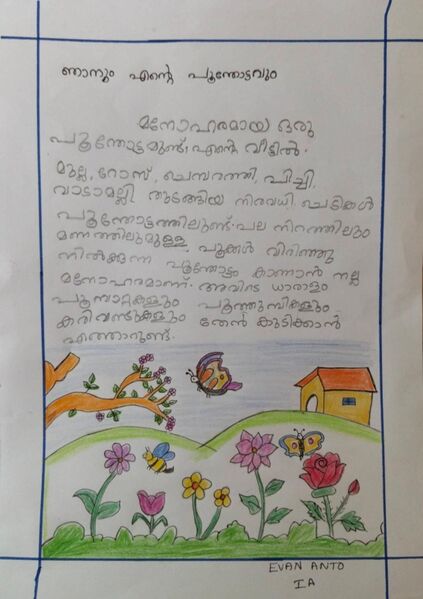 ഞാനും എന്റെ പൂന്തോട്ടവും
മനോഹരമായ ഒരു
പൂന്തോട്ടമുണ്ട് എന്റെ വീട്ടിൽ.
മുല്ല, റോസ്, ചെമ്പരത്തി, പിച്ചി,
വാടാമല്ലി തുടങ്ങിയ നിരവധി ചെടികൾ
പൂന്തോട്ടത്തിലുണ്ട്. പല നിറത്തിലും
മണത്തിലുമുള്ള പൂക്കൾ വിരിഞ്ഞു
നിൽക്കുന്ന പൂന്തോട്ടം കാണാൻ നല്ല
മനോഹരമാണ്. അവിടെ ധാരാളം
പൂമ്പാറ്റകളും പൂത്തുമ്പികളും
കരിവണ്ടുകളും തേൻ കുടിക്കാൻ
എത്താറുണ്ട്.
EVAN ANTO
IA